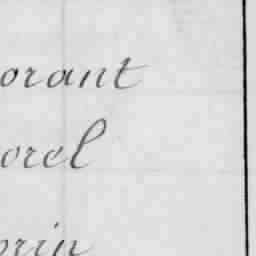 orant
orel
orin